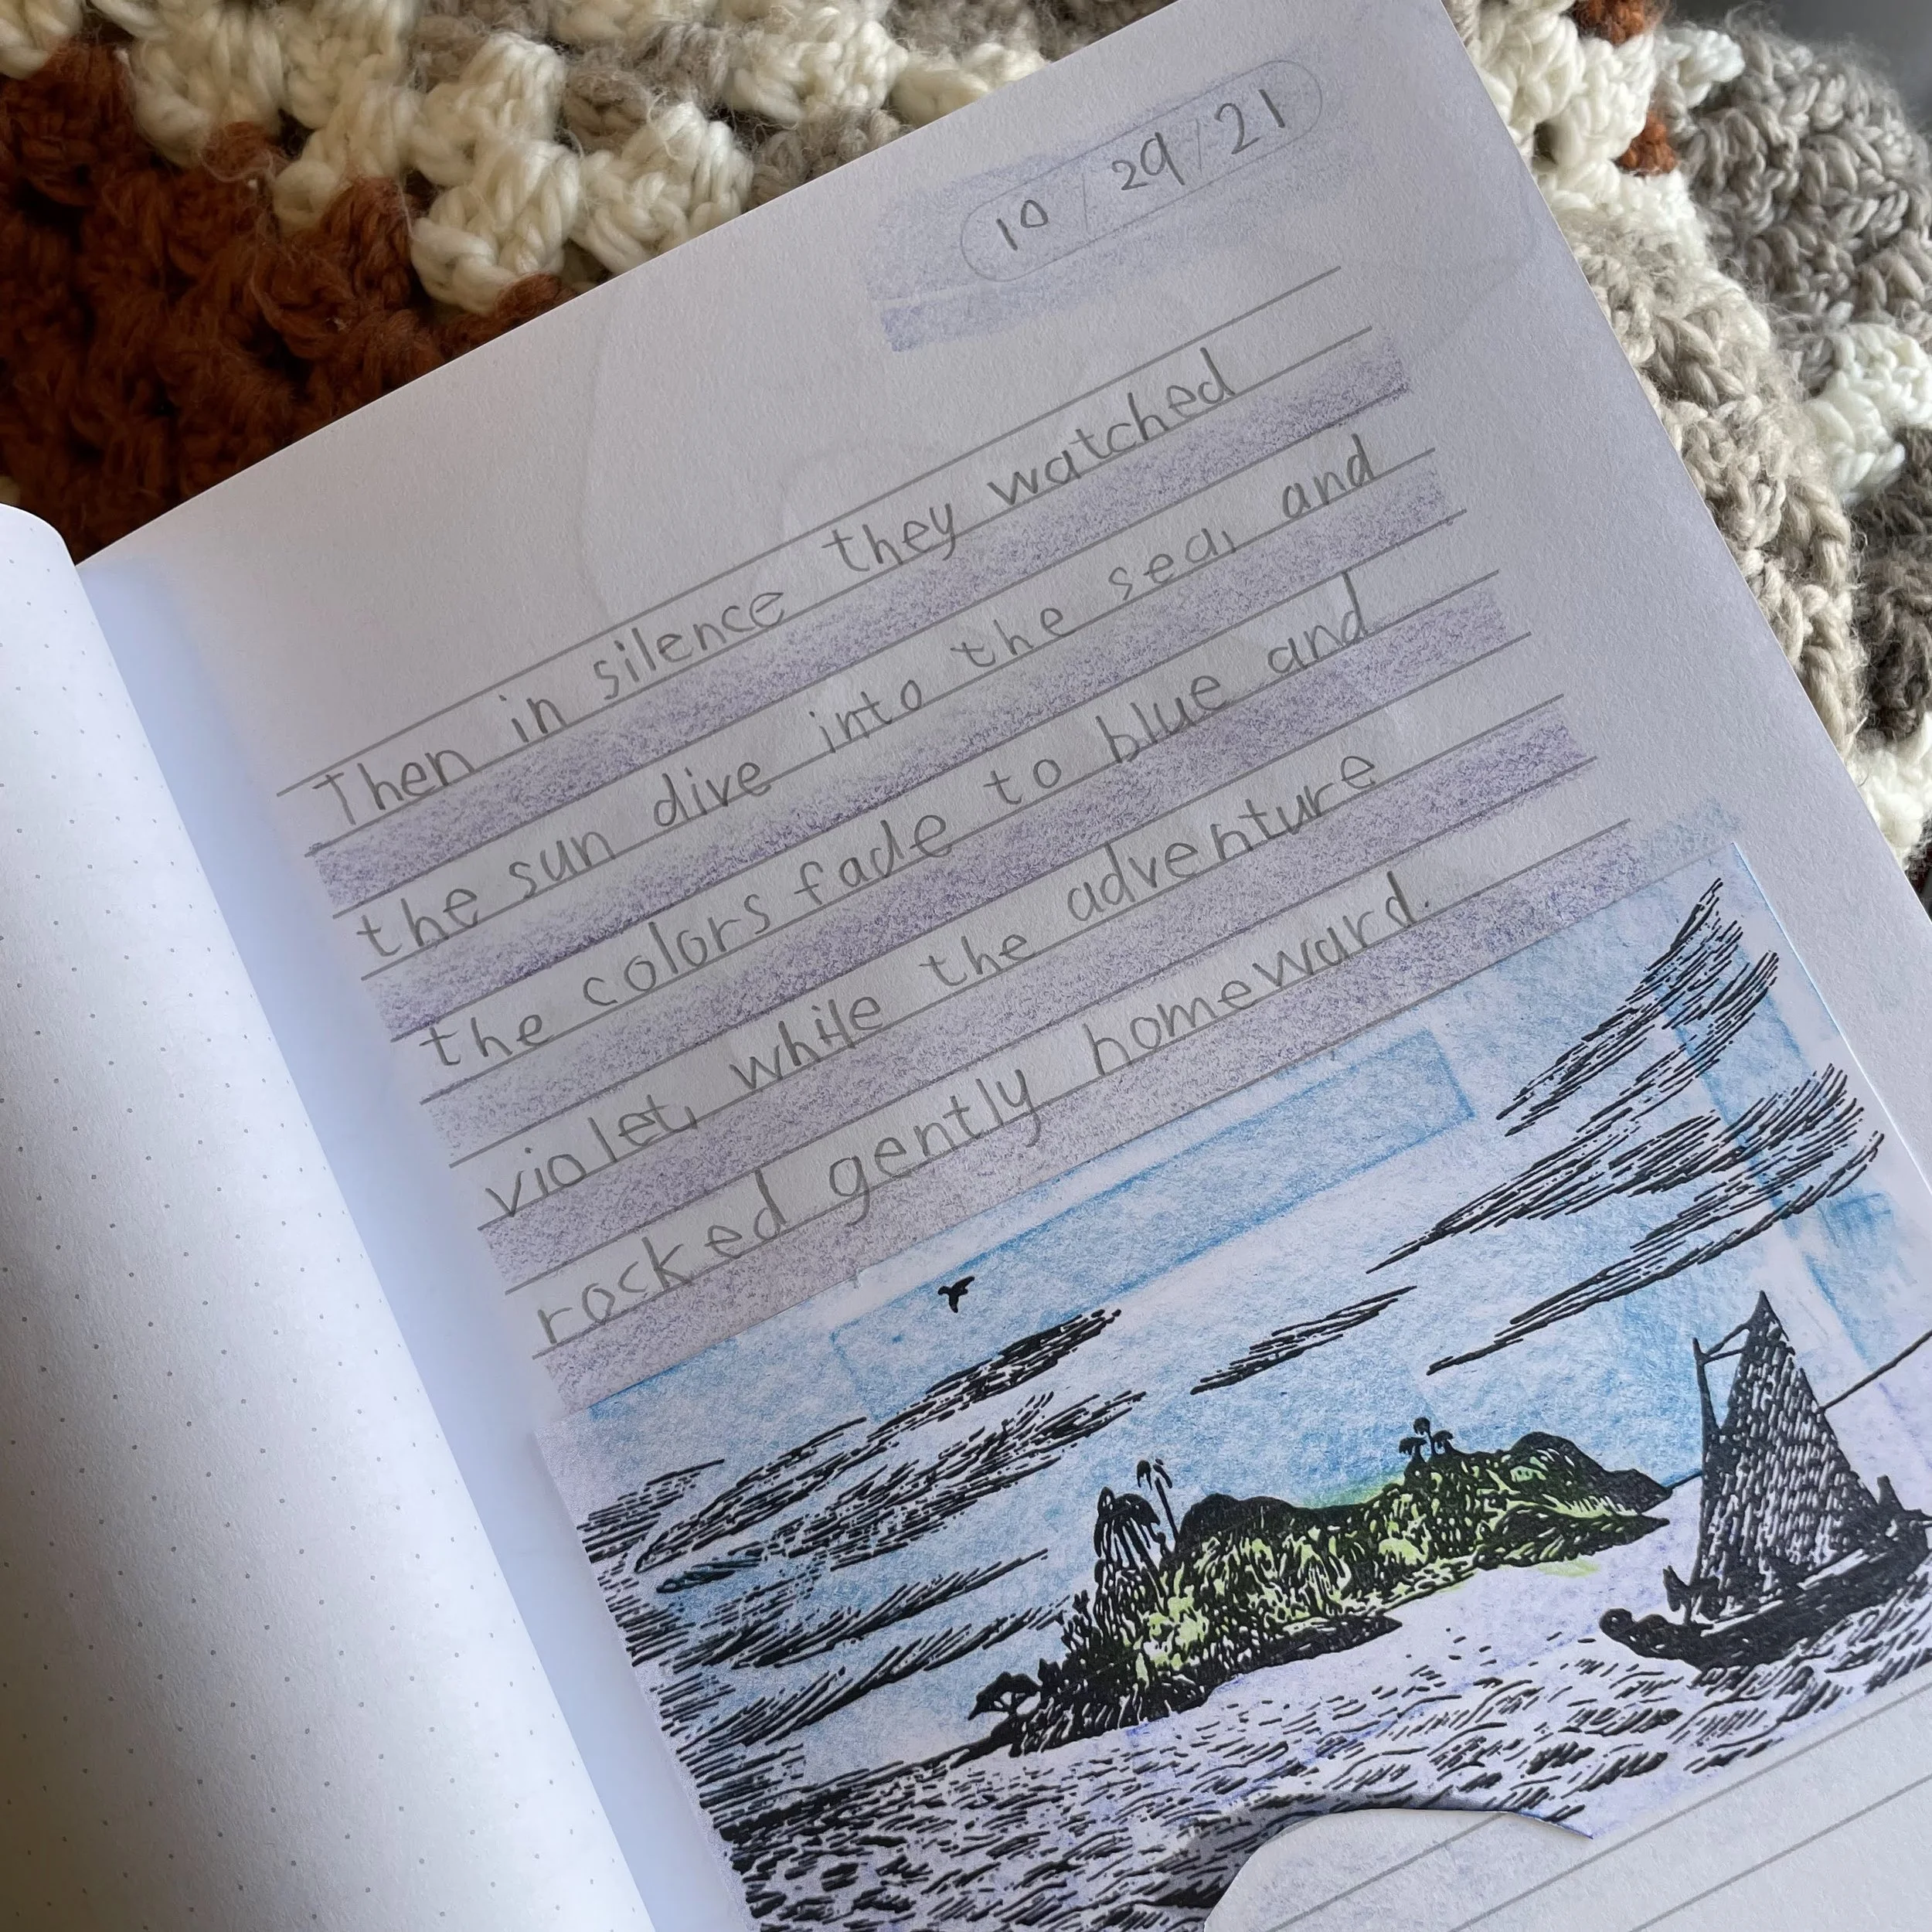 10/29/21
Then in silence they watched
the sun dive into the sea, and
the colors fade to blue and
violet, while the adventure
rocked gently homeward.